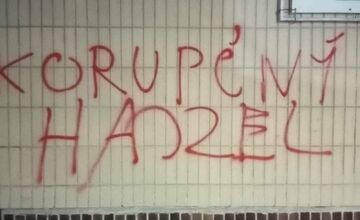 KORUPČNÝ
HADZEL